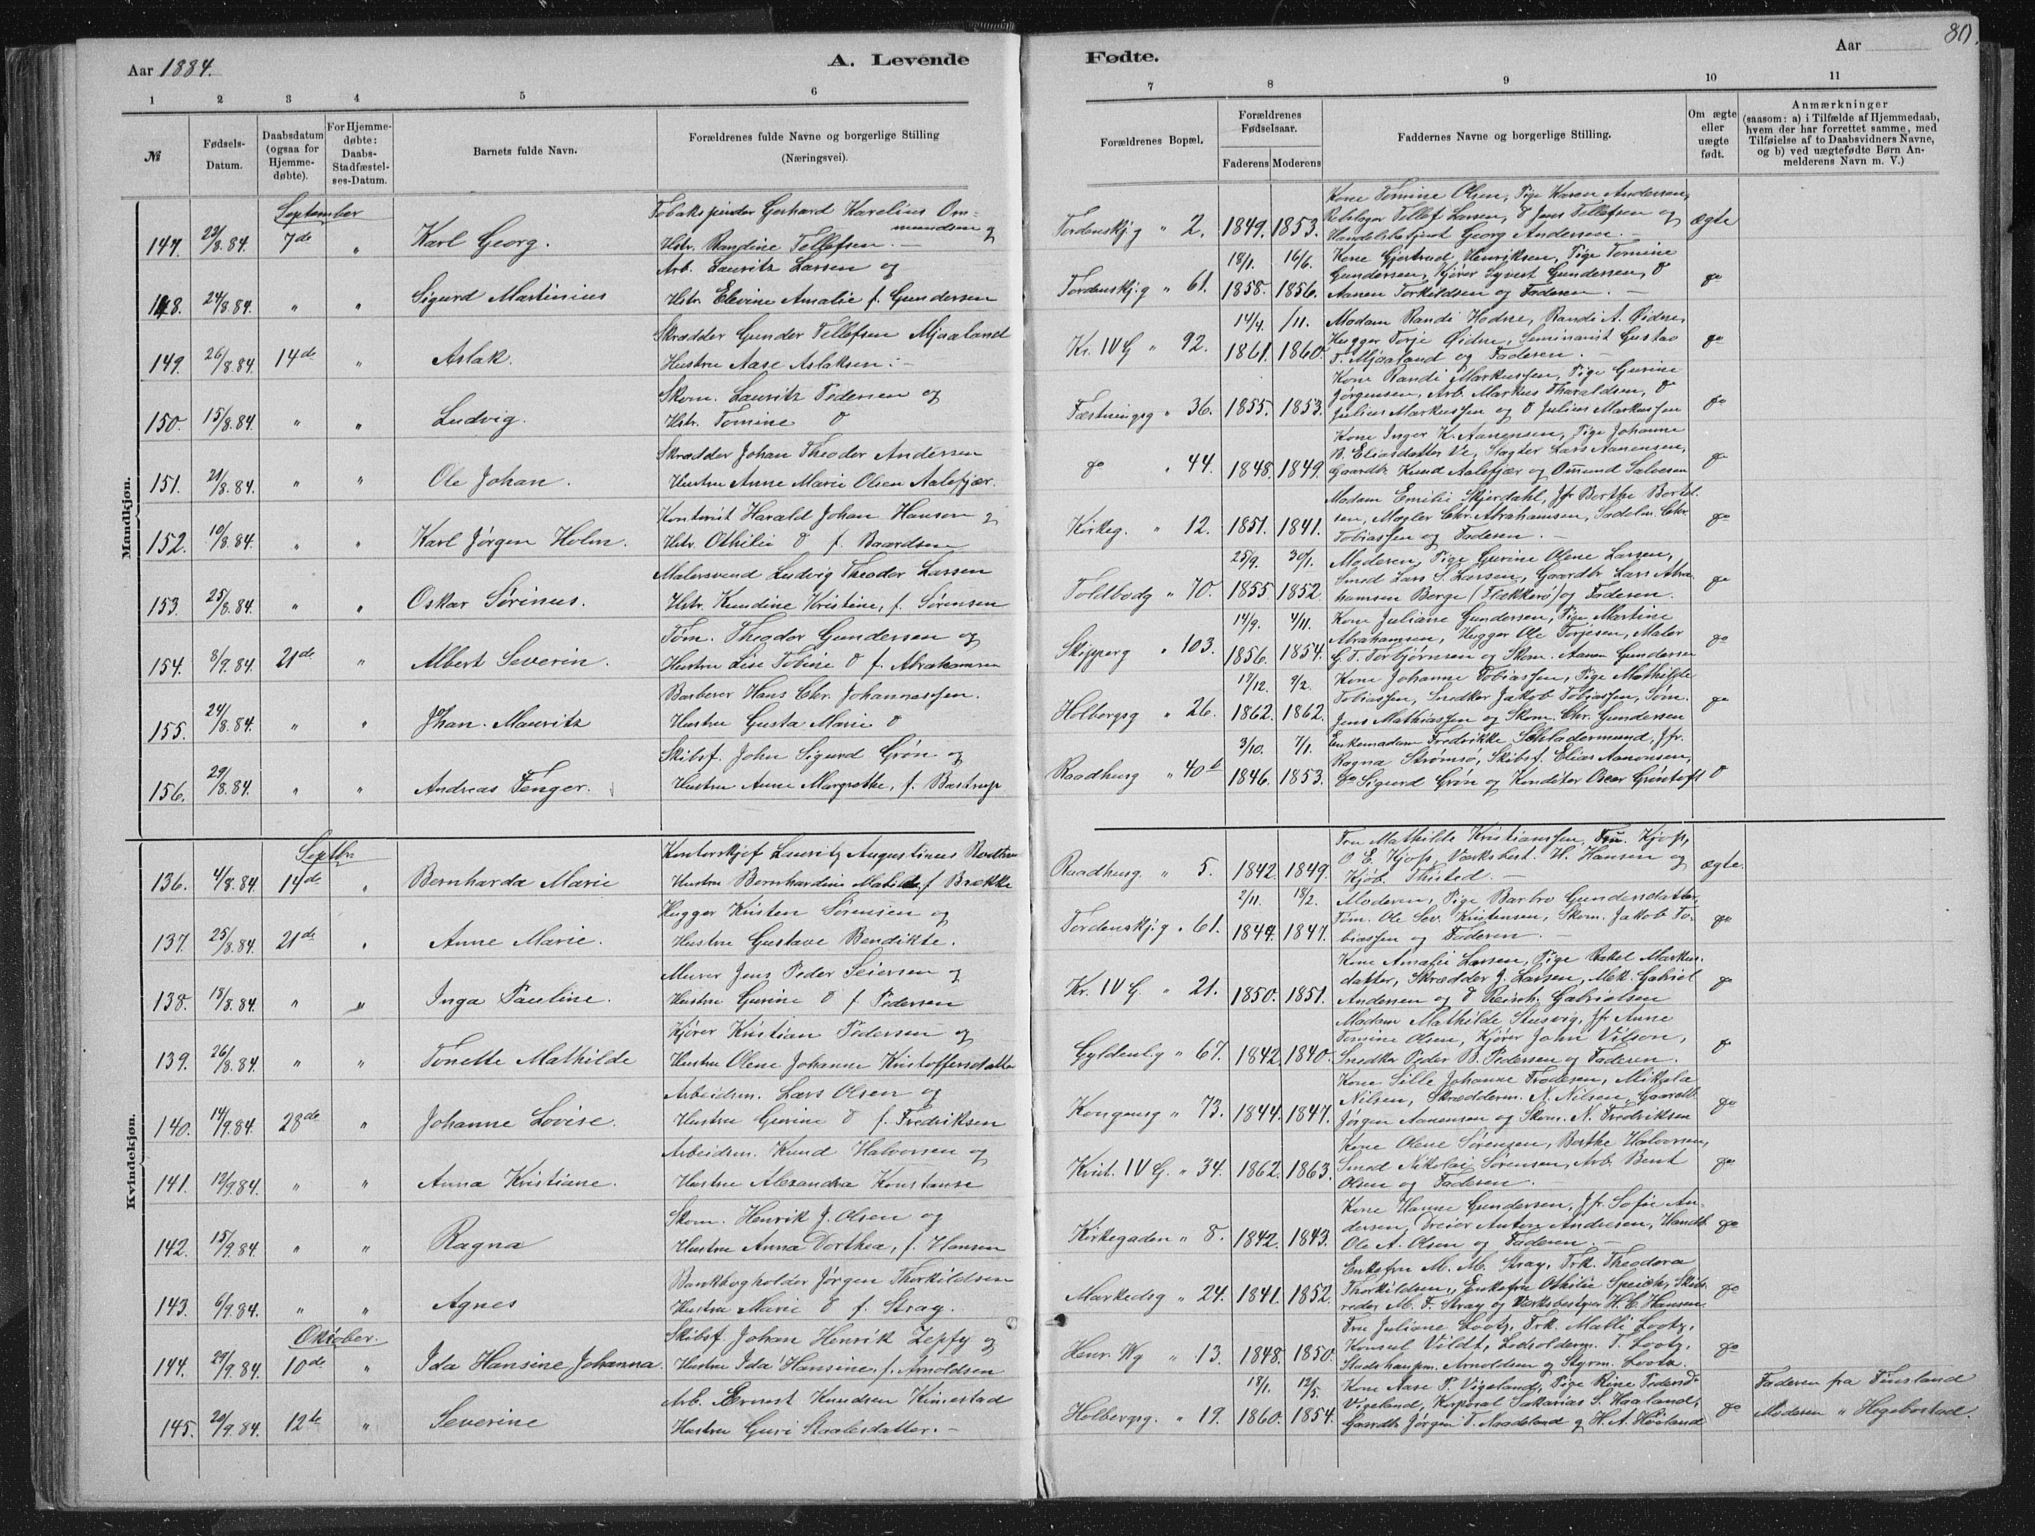 Aar 1884.
A. Levende
Fødte.
Aar
80.
1 2 3 4 5 6 7 8 9 10 11
№
Fødsels-
Datum.
Daabsdatum
(ogsaa for
Hjemme-
døbte).
For Hjemme-
døbte:
Daabs-
Stadfæstel-
ses-Datum.
Barnets fulde Navn.
Forældrenes fulde Navne og borgerlige Stilling
(Næringsvei).
Forældrenes Bopæl.
Forældrenes
Fødselsaar.
Faderens Moderens
Faddernes Navne og borgerlige Stilling.
Om ægte
eller
uægte
født.
Anmærkninger
(saasom: a) i Tilfælde af Hjemmedaab,
hvem der har forrettet samme, med
Tilføielse af to Daabsvidners Navne,
og b) ved uægtefødte Børn An-
melderens Navn m. V.)
Mandkjøn.
September
147. 23/8.84. 7de " Karl Georg.
Tobakspinder Gerhard Karelius Om-
mundsen og
Hstr. Randine Tellefsen. —
Tordenskj.g " 2. 1849. 1853.
Kone Tomine Olsen, Pige Karen Andersen,
Rebslager Tellef Larsen, d Jens Tellefsen og
Handelsbetjent Georg Andersen. —
ægte
148. 24/8.84. " " Sigurd Martinius
Arb. Lauritz Larsen og
Hstr. Elevine Amalie f. Gundersen
Tordenskj.g " 61. 18/1. 1858. 16/6. 1856.
Kone Gjertrud Henriksen, Pige Tomine
Gundersen, Kjører Syvert Gundersen, d
Aanen Torkildsen og Faderen. —
do
149. 26/8.84. 14de " Aslak.
Skrædder Gunder Tellefsen Mjaaland
Hustru Aase Aslaksen. —
Kr. IV G " 92. 14/4. 1861. /11. 1860.
Madam Randi Hodne, Randi A. Øidne,
Hugger Terje Øidne, Seminarist Gustav
T. Mjaaland og Faderen. —
do
150. 15/8.84. " " Ludvig.
Skom. Lauritz Pedersen og
Hstr. Tomine d
Fæstningsg " 36. 1855. 1853.
Kone Randi Markussen, Pige Gurine
Jørgensen, Arb. Markus Tharaldsen, d
Julius Markussen og d Julius Markussen
do
151. 21/8.84. " " Ole Johan.
Skrædder Johan Theodor Andersen
Hustru Anne Marie Olsen Aalefjær.
do " 44. 1848. 1849.
Kone Inger K. Aanensen, Pige Johanne
B. Eliasdatter Ve, Slagter Lars Aanensen,
Gaardbr. Knud Aalefjær og Omund Salvesen
do
152. 10/8.84. " " Karl Jørgen Holm.
Kontorist Harald Johan Hansen og
Hstr. Othilie d f. Baardsen
Kirkeg. " 12. 1851. 1841.
Madam Emilie Skjerdahl, Jfr Berthe Bertel-
sen, Mægler Chr. Abrahamsen, Sadelm. Chr.
Tobiassen og Faderen. —
do
153. 25/8.84. " " Oskar Sørinus.
Malersvend Ludvig Theodor Larsen
Hstr. Kundine Kristine, f. Sørensen
Toldbodg " 70. 25/9. 1855 30/1. 1852
Moderen, Pige Gurine Olene Larsen,
Smed Lars S. Larsen, Gaardbr. Lars Abra-
hamsen Berge (Flækkerø) og Faderen.
do
154. 8/9.84. 21de " Albert Severin.
Tøm. Theodor Gundersen og
Hustru Lise Tobine d f. Abrahamsen
Skipperg " 103. 14/9. 1856. 4/11. 1854.
Kone Juliane Gundersen, Pige Martine
Abrahamsen, Hugger Ole Torjesen, Maler
G. T. Torbjørnsen og Skom. Aanen Gundersen
do
155. 24/8.84. " " Johan Mauritz
Barberer Hans Chr. Johannassen.
Hustru Gusta Marie d
Holbergsg " 26. 17/12. 1862. 2/2. 1862.
Kone Johanne Tobiassen, Pige Mathilde
Tobiassen, Snedker Jakob Tobiassen, Søm.
Jens Mathiassen og Skom. Chr. Gundersen
do
156. 29/8.84. " " Andreas Fenger.
Skibsf. John Sigurd Grøn og
Hustru Anne Margrethe, f. Bastrup
Raadhusg " 40b 3/10. 1846. 7/1. 1853.
Enkemadam Fredrikke Schladermund, Jfr.
Ragna Strømsø, Skibsf. Elias Aanonsen,
do Sigurd Grøn og Konditor Oscar Grintoft
d
Kvindekjøn.
Septbr
136. 4/8.84. 14de " Bernharda Marie
Kontorskjef Lauritz Augustinus
Hustru Bernhardine Matilde f. Brække
Raadhusg " 5. 1842. 1849.
Fru Mathilde Kristianssen, Fru Kjøp,
O. E. Kjøp, Værksbest. H. Hansen og
Kjøb. Thisted. —
ægte.
137. 25/8.84. 21de " Anne Marie.
Hugger Kristen Sørensen og
Hustru Gustave Bendikte.
Tordenskj.g " 61. 2/11. 1849. 18/2. 1847.
Moderen, Pige Barbro Gundersdatter,
Tøm. Ole Sev. Kristensen, Skom. Jakob To-
biassen og Faderen. —
do
138. 18/8.84. " " Inga Pauline.
Murer Jens Peder Seiersen og
Hustru Gurine d f. Pedersen
Kr. IV G. " 21. 1850. 1851.
Kone Amalie Larsen, Pige Rakel Markus-
datter, Skrædder J. Larsen, Mek. Gabriel
Andersen og d Reinh. Gabrielsen
do
139. 26/8.84. " " Tonette Mathilde
Kjører Kristian Pedersen og
Hustru Olene Johanne Kristoffersdatter
Gyldenl.g " 67. 1842. 1840.
Madam Mathilde Stusvig, Jfr Anne
Tomine Olsen, Kjører John Vilson,
Snedker Peder B. Pedersen og Faderen.
d
140. 14/9.84. 28de " Johanne Lovise.
Arbeidsm. Lars Olsen og
Hustru Gurine d f. Fredriksen
Kongensg " 73. 1844. 1847.
Kone Sille Johanne Frodesen, Mikala
Nilsen, Skrædderm. N. Nilsen, Gaardb.
Jørgen Aanensen og Skom. N. Fredriksen
do
141. 12/9.84. " " Anna Kristiane.
Arbeidsm. Knud Halvorsen og
Hustru Alexandra Konstanse
Kvit. IV G. " 34. 1862. 1863.
Kone Olene Sørensen, Berthe Halvorsen,
Smed Nikolai Sørensen, Arb. Bent
Olsen og Faderen. —
do
142. 15/9.84. " " Ragna
Skom. Henrik J. Olsen og
Hustru Anna Dorthea, f. Hansen
Kirkegaden " 8. 1842. 1843.
Kone Hanne Gundersen, Jfr. Sofie An-
dersen, Dreier Anton Andersen, Handb.
Ole A. Olsen og Faderen. —
do
143. 6/9.84. " " Agnes
Bankbogholder Jørgen Thorkildsen
Hustru Marie d f. Stray.
Markedsg " 24. 1841. 1852.
Enkefru M. M. Stray, Frk. Theodora
Thorkildsen, Enkefru Othilie Speich, Skibs-
reder M. F. Stray og Værksbestyrer H. C. Hansen
do
Oktober.
144. 29/9.84. 10de " Ida Hansine Johanna.
Skibsf. Johan Henrik Zepfy og
Hustru Ida Hansine, f. Arnoldsen
Henr. Wg " 13. 1848. 1850.
Fru Juliane Lootz, Frk. Malli Lootz,
Konsul Vildt, Lodsolderm. T. Lootz,
Stadshauptm. Arnoldsen og Styrm. Lootz.
do
145. 20/9.84. 12te " Severine
Arb. Ærnst Knudsen Kimestad
Hustru Guri Staalesdatter. —
Holbergsg. " 19. 18/1. 1860. 12/5. 1854.
Kone Aase P. Vigeland, Pige Rine Pedersd.
Vigeland, Korporal Sakarias S. Haaland,
Gaardbr. Jørgen T. Naadeland og H. A. Høiland
do
Faderen fra Finsland
Moderen " Hegebostad.